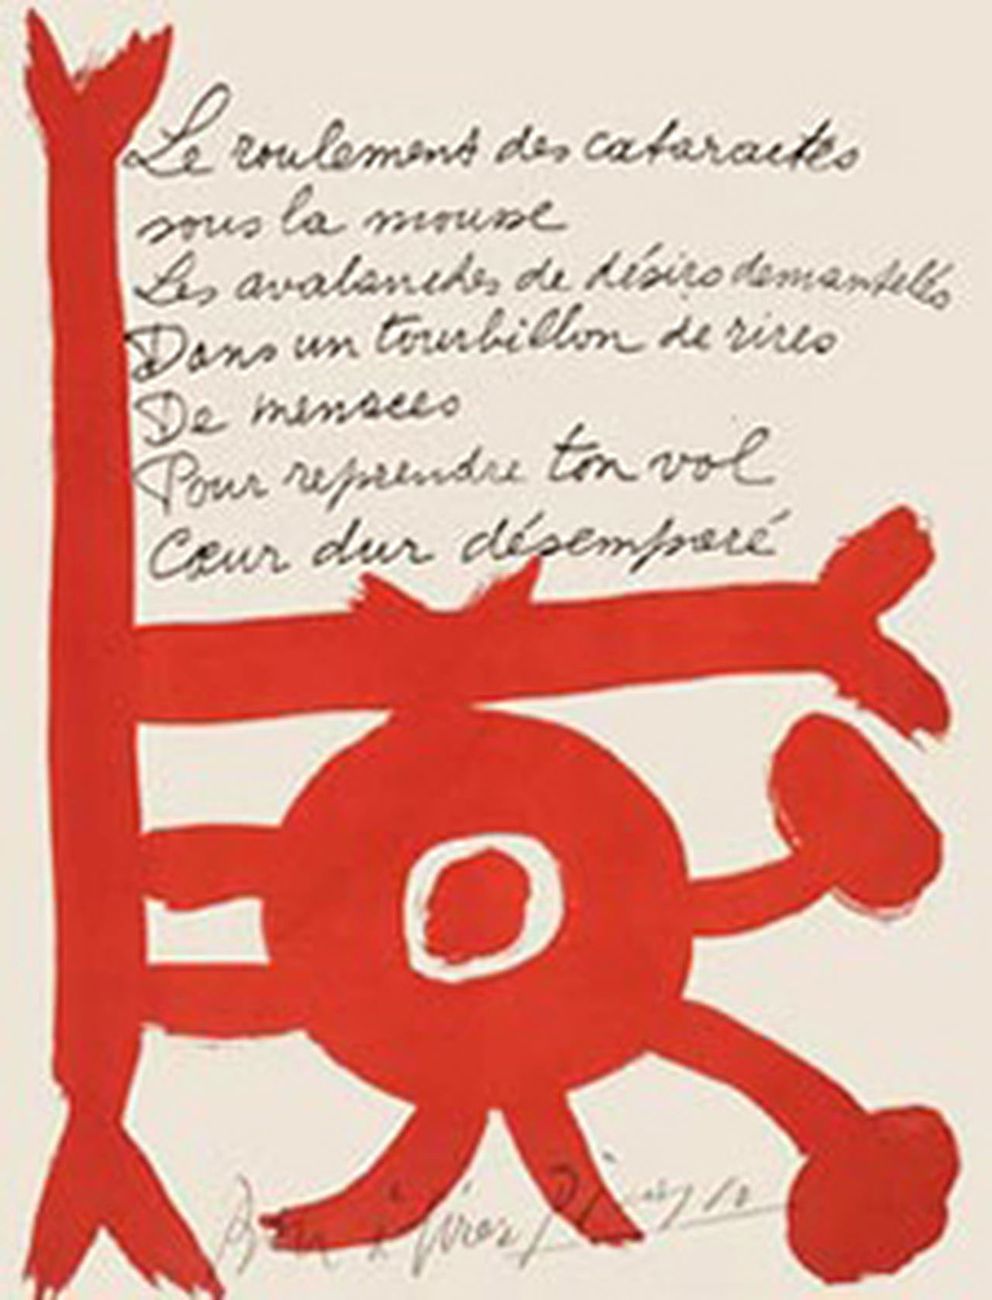 Le roulement des cataractes
sous la mousse
Les avalanches de désirs demantelés
Dans un tourbillon de rires
De menaces
Pour reprendre ton vol
Cœur dur désemparé
Bon à tirer